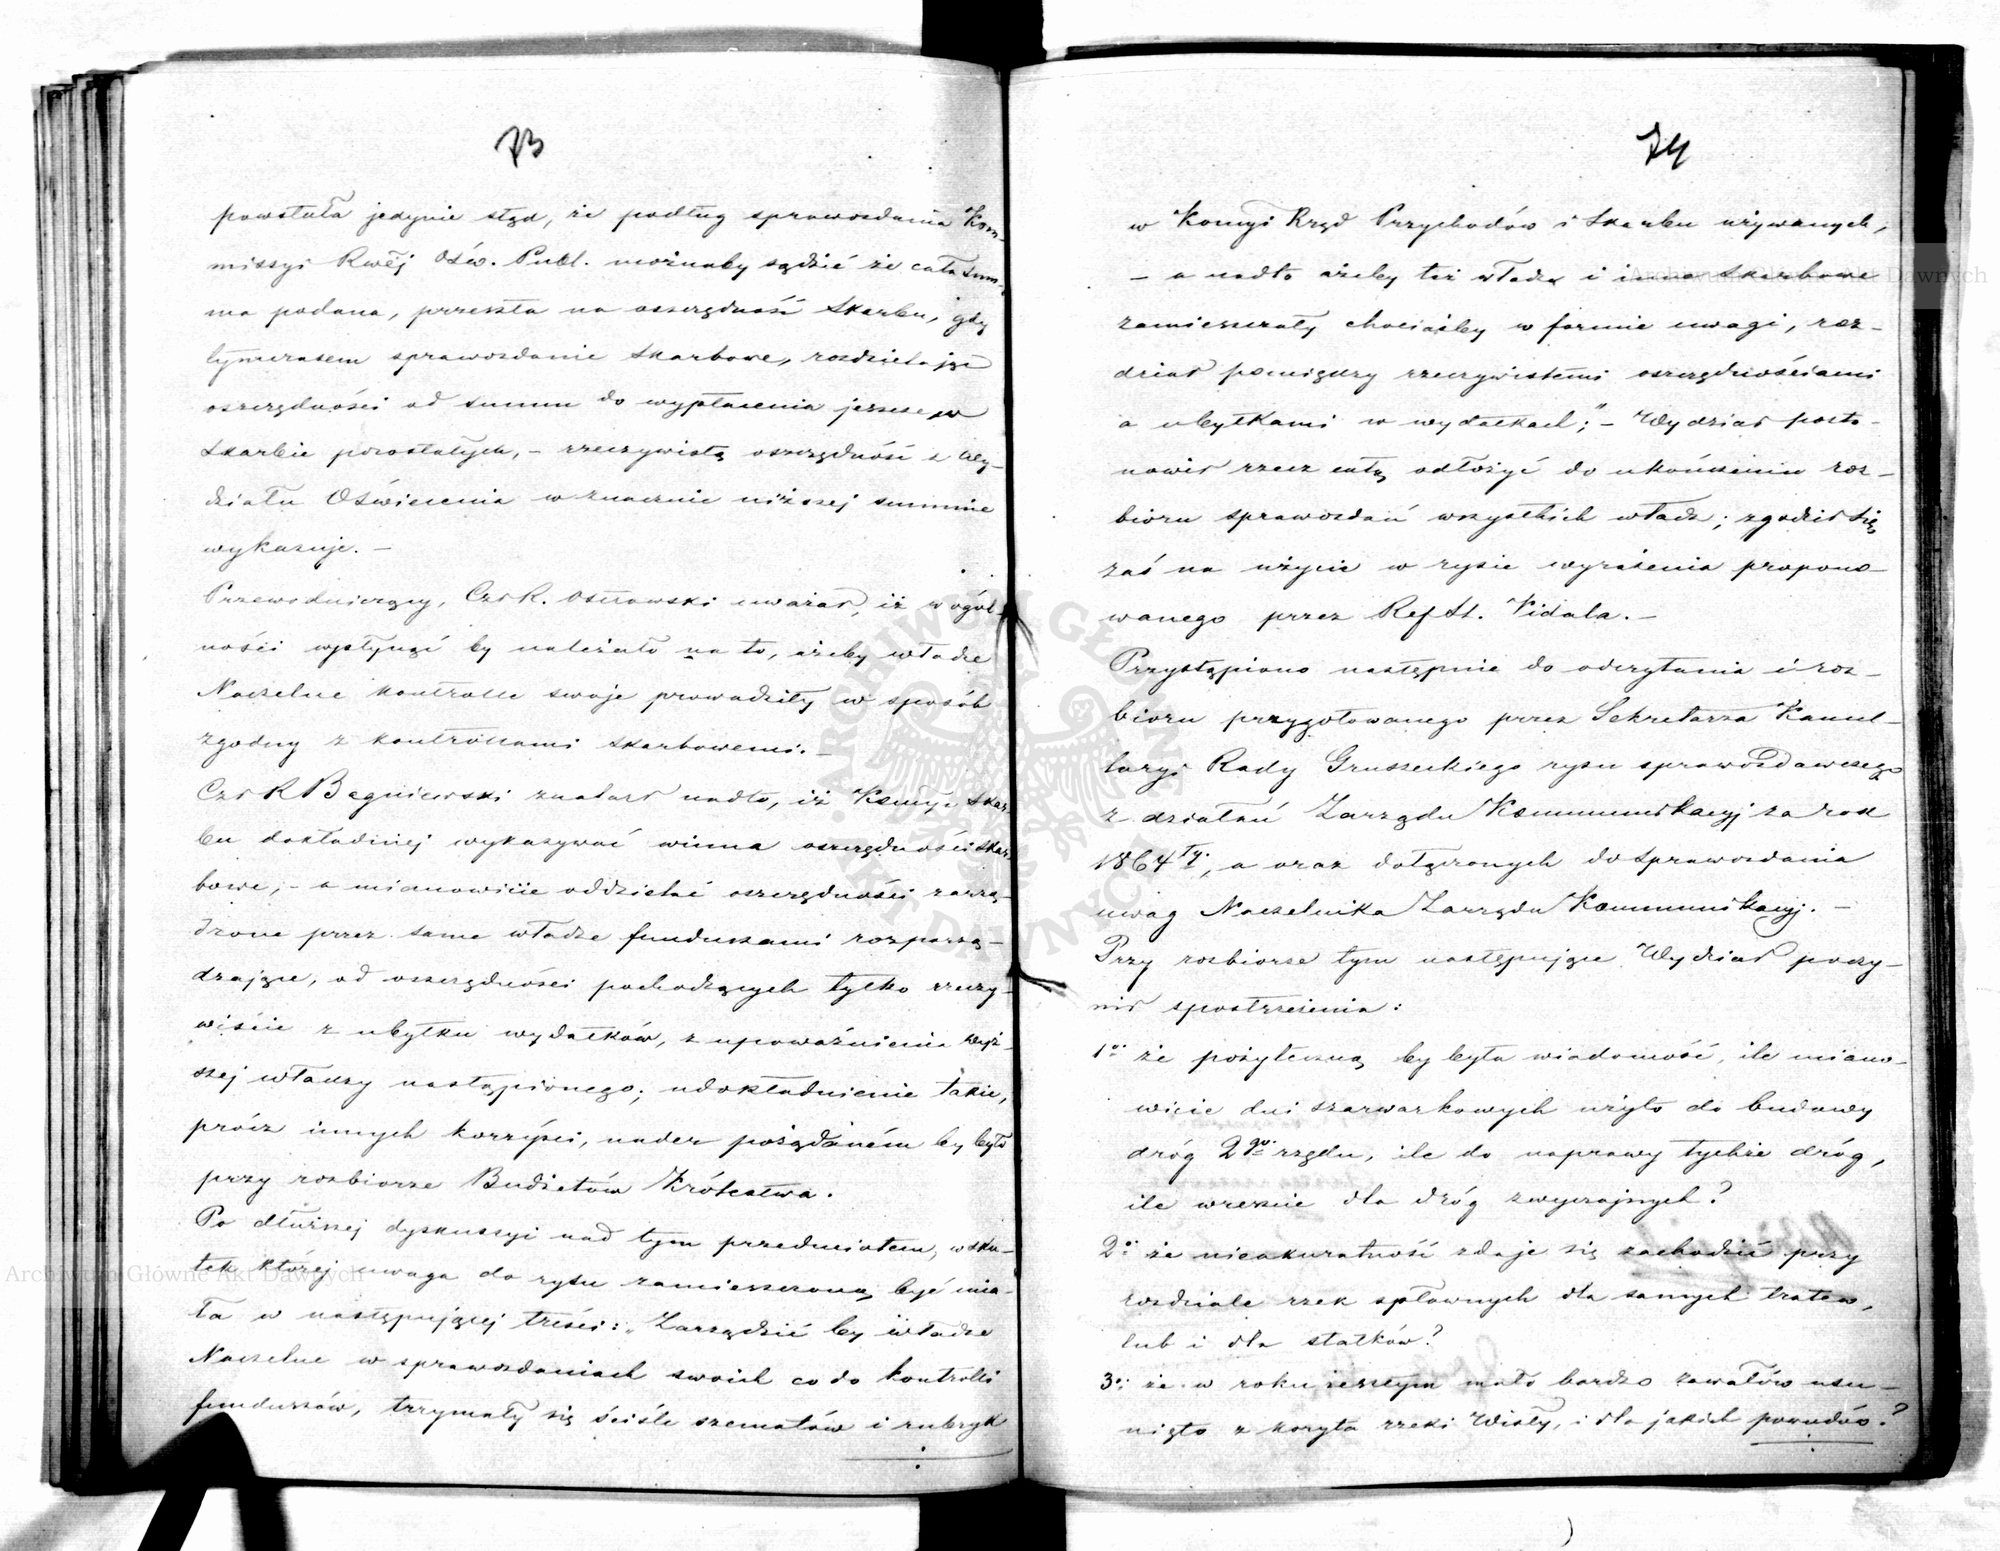 73
powstała jedynie stąd, że podług sprawozdania Kom-
missyi Rwéj Ośw. Publ. możnaby sądzić że cała sum-
ma podana, przeszła na oszczędność Skarbu, gdy
tymczasem sprawozdanie Skarbowe, rozdzielając
oszczędności od summ do wypłacenia jeszcze w
Skarbie pozostałych, – rzeczywistą oszczędność z Wy-
działu Oświecenia w znacznie niższej summie
wykazuje. –
Przewodniczący, Czł R. Ostrowski uważał, iż w ogól-
ności wpłynąć by należało na to, ażeby władze
Naczelne kontrolle swoje prowadziły w sposób
zgodny z kontrollami skarbowemi. –
Czł R Bagniewski znalazł nadto, iż Kommya Skar
bu dokładniej wykazywać winna oszczędności skar
bowe, – a mianowicie oddzielać oszczędności zarzą-
dzone przez same władze funduszami rozporzą-
dzające, od oszczędności pochodzących tylko rzeczy-
wiście z ubytku wydatków, z upoważnienia wyż-
szej władzy nastąpionego; udokładnienie takie,
prócz innych korzyści, nader pożądaném by było
przy rozbiorze Budżetów Królestwa.
Po dłuższej dyskussyi nad tym przedmiotem, wsku-
tek której uwaga do rysu zamieszczoną być mia-
ła w następującej treści: „Zarządzić by władze
Naczelne w sprawozdaniach swoich co do kontrolli
funduszów, trzymały się ściśle szematów i rubryk
74
w Komyi Rząd Przychodów i Skarbu używanych,
– a nadto ażeby też władze i inne Skarbowe
zamieszczały chociażby w formie uwagi, roz-
dział pomiędzy rzeczywistemi oszczędnościami
a ubytkami w wydatkach;" – Wydział posta-
nowił rzecz całą odłożyć do ukończenia roz-
bioru sprawozdań wszystkich władz; zgodził się
zaś na użycie w rysie wyrażenia propono-
wanego przez Ref St. Vidala. –
Przystąpiono następnie do odczytania i roz-
bioru przygotowanego przez Sekretarza Kancel-
laryi Rady Gruszeckiego rysu sprawozdawczego
z działań Zarządu Kommunikacyj za rok
1864ty, a oraz dołączonych do sprawozdania
uwag Naczelnika Zarządu Kommunikacyj. –
Przy rozbiorze tym następujące Wydział poczy-
nił spostrzeżenia:
1o: że pożyteczną by była wiadomość, ile miano-
wicie dni szarwarkowych użyto do budowy
dróg 2go rzędu, ile do naprawy tychże dróg,
ile wreszcie dla dróg zwyczajnych?
2o: że nieakuratność zdaje się zachodzić przy
rozdziale rzek spławnych dla samych tratew,
lub i dla statków?
3o: że w roku zeszłym mało bardzo zawałów usu-
nięto z koryta rzeki Wisły, i dla jakich powodów?